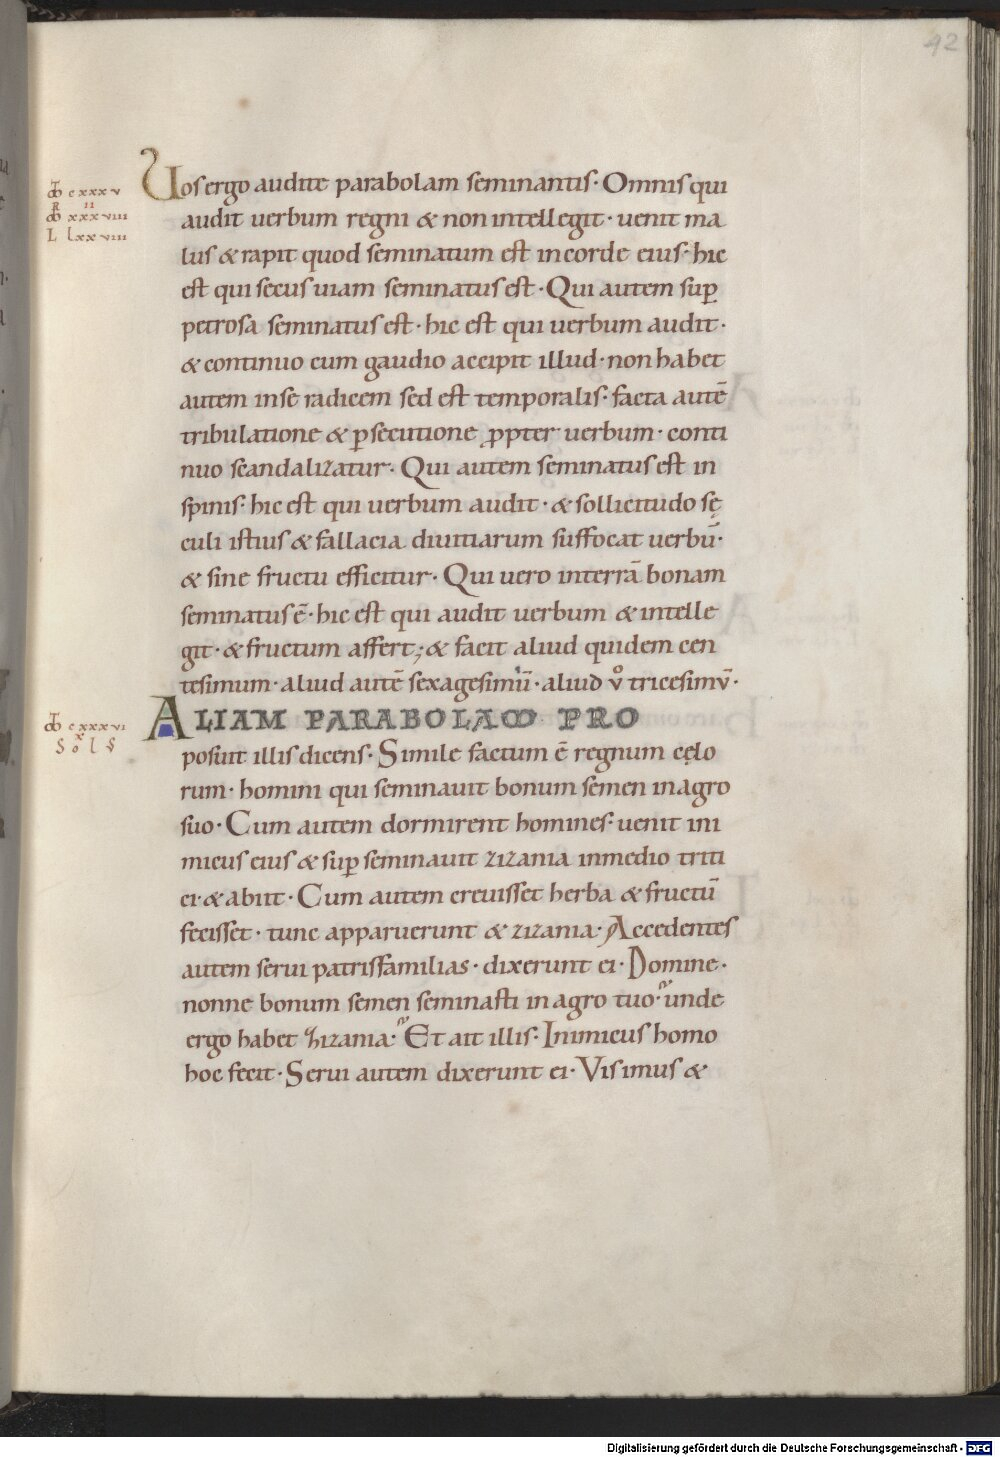 42
ⲙ cxxxv
R II
ⲙ xxxviii
L lxxviii
Uos ergo audite parabolam seminantis· Omnis qui
audit uerbum regni & non intellegit· uenit ma
lus & rapit quod seminatum est in corde eius· hic
est qui secus uiam seminatus est· Qui autem sup̄
petrosa seminatus est· hic est qui uerbum audit·
& continuo cum gaudio accipit illud· non habet
autem in se radicem sed est temporalis· facta autē
tribulatione & ꝑsecutione ꝓpter uerbum· conti
nuo scandalizatur· Qui autem seminatus est in
spinis· hic est qui uerbum audit· & sollicitudo sę
culi istius & fallacia diuitiarum suffocat uerbū·
& sine fructu efficitur· Qui uero in terrā bonam
seminatus ē· hic est qui audit uerbum & intelle
git· & fructum affert; & facit aliud quidem cen
tesimum· aliud autē sexagesimū· aliud vͦ tricesimv̄·
ⲙ cxxxvi
ALIAM PARABOLAM PRO
posuit illis dicens· Simile factum ē regnum cęlo
rum· homini qui seminauit bonum semen in agro
suo· Cum autem dormirent homines· uenit ini
micus eius & sup̄ seminauit zizania in medio triti
ci· & abiit· Cum autem creuisset herba & fructū
fecisset· tunc apparuerunt & zizania· Accedentes
autem serui patrisfamilias· dixerunt ei· Domine·
nonne bonum semen seminasti in agro tuo· unde
ergo habet zizania· Et ait illis· Inimicus homo
hoc fecit· Serui autem dixerunt ei· Vis imus &
Digitalisierung gefördert durch die Deutsche Forschungsgemeinschaft - DFG